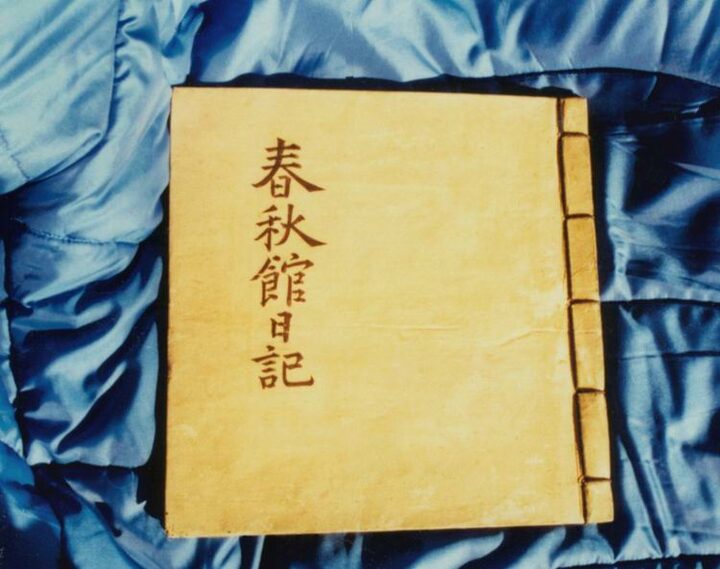 春秋館日記